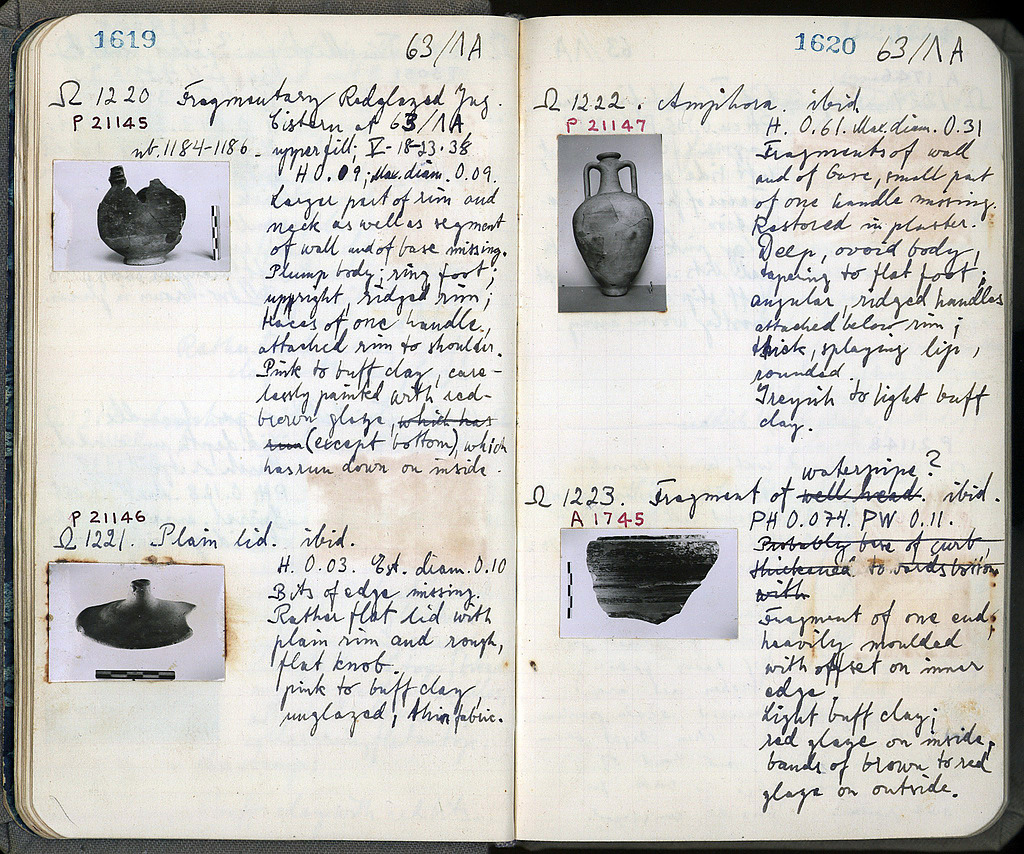 1619
63/1A
Ω 1220 Fragmentary Redglazed Jug.
P 21145
Cistern at 63/1A
nb. 1184-1186 - upper fill; V-18-23-38
H 0.09; Max. diam. 0.09.
Larger part of rim and
neck as well as segment
of wall and of base missing.
Plump body; ring foot;
upright, ridged rim;
traces of one handle,
attached rim to shoulder.
Pink to buff clay, care-
lessly painted with red-
brown glaze which has
run (except bottom), which
has run down on inside.
P 21146
Ω 1221. Plain lid. ibid.
H. 0.03. Est. diam. 0.10
Bits of edge missing.
Rather flat lid with
plain rim and rough,
flat knob.
pink to buff clay,
unglazed; thin fabric.
1620
63/1A
Ω 1222. Amphora. ibid
P 21147
H. 0.61. Max. diam. 0.31
Fragments of wall
and of base, small part
of one handle missing.
Restored in plaster.
Deep, ovoid body,
tapering to flat foot;
angular, ridged handles
attached below rim;
thick, splaying lip,
rounded.
Greyish to light buff
clay.
waterpipe?
Ω 1223. Fragment of well head. ibid.
A 1745
PH 0.074. PW 0.11.
Probably base of curb,
thickened to bottom
with
Fragment of one end,
heavily moulded
with offset on inner
edge.
Light buff clay;
red glaze on inside,
bands of brown to red
glaze on outside.